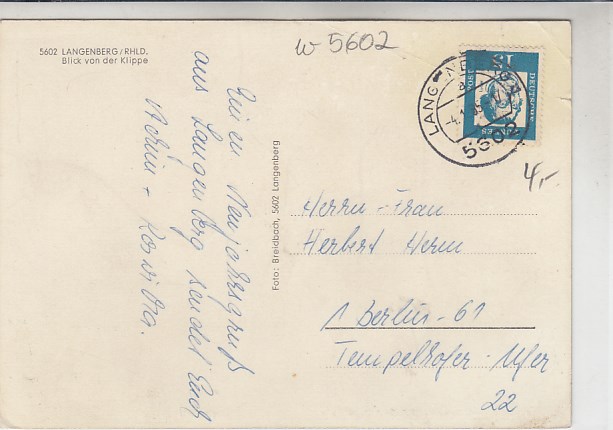 5602 LANGENBERG/RHLD.
Blick von der Klippe
W 5602
Einen Neujahrsgruß
aus Langenberg sendet Euch
Achim + Roswitha.
Foto: Breidbach, 5602 Langenberg
DEUTSCHE
BUNDES
15
LANGENBERG
5602
4,-
Herrn - Frau
Herbert Herm
1 Berlin - 61
Tempelhofer - Ufer
22